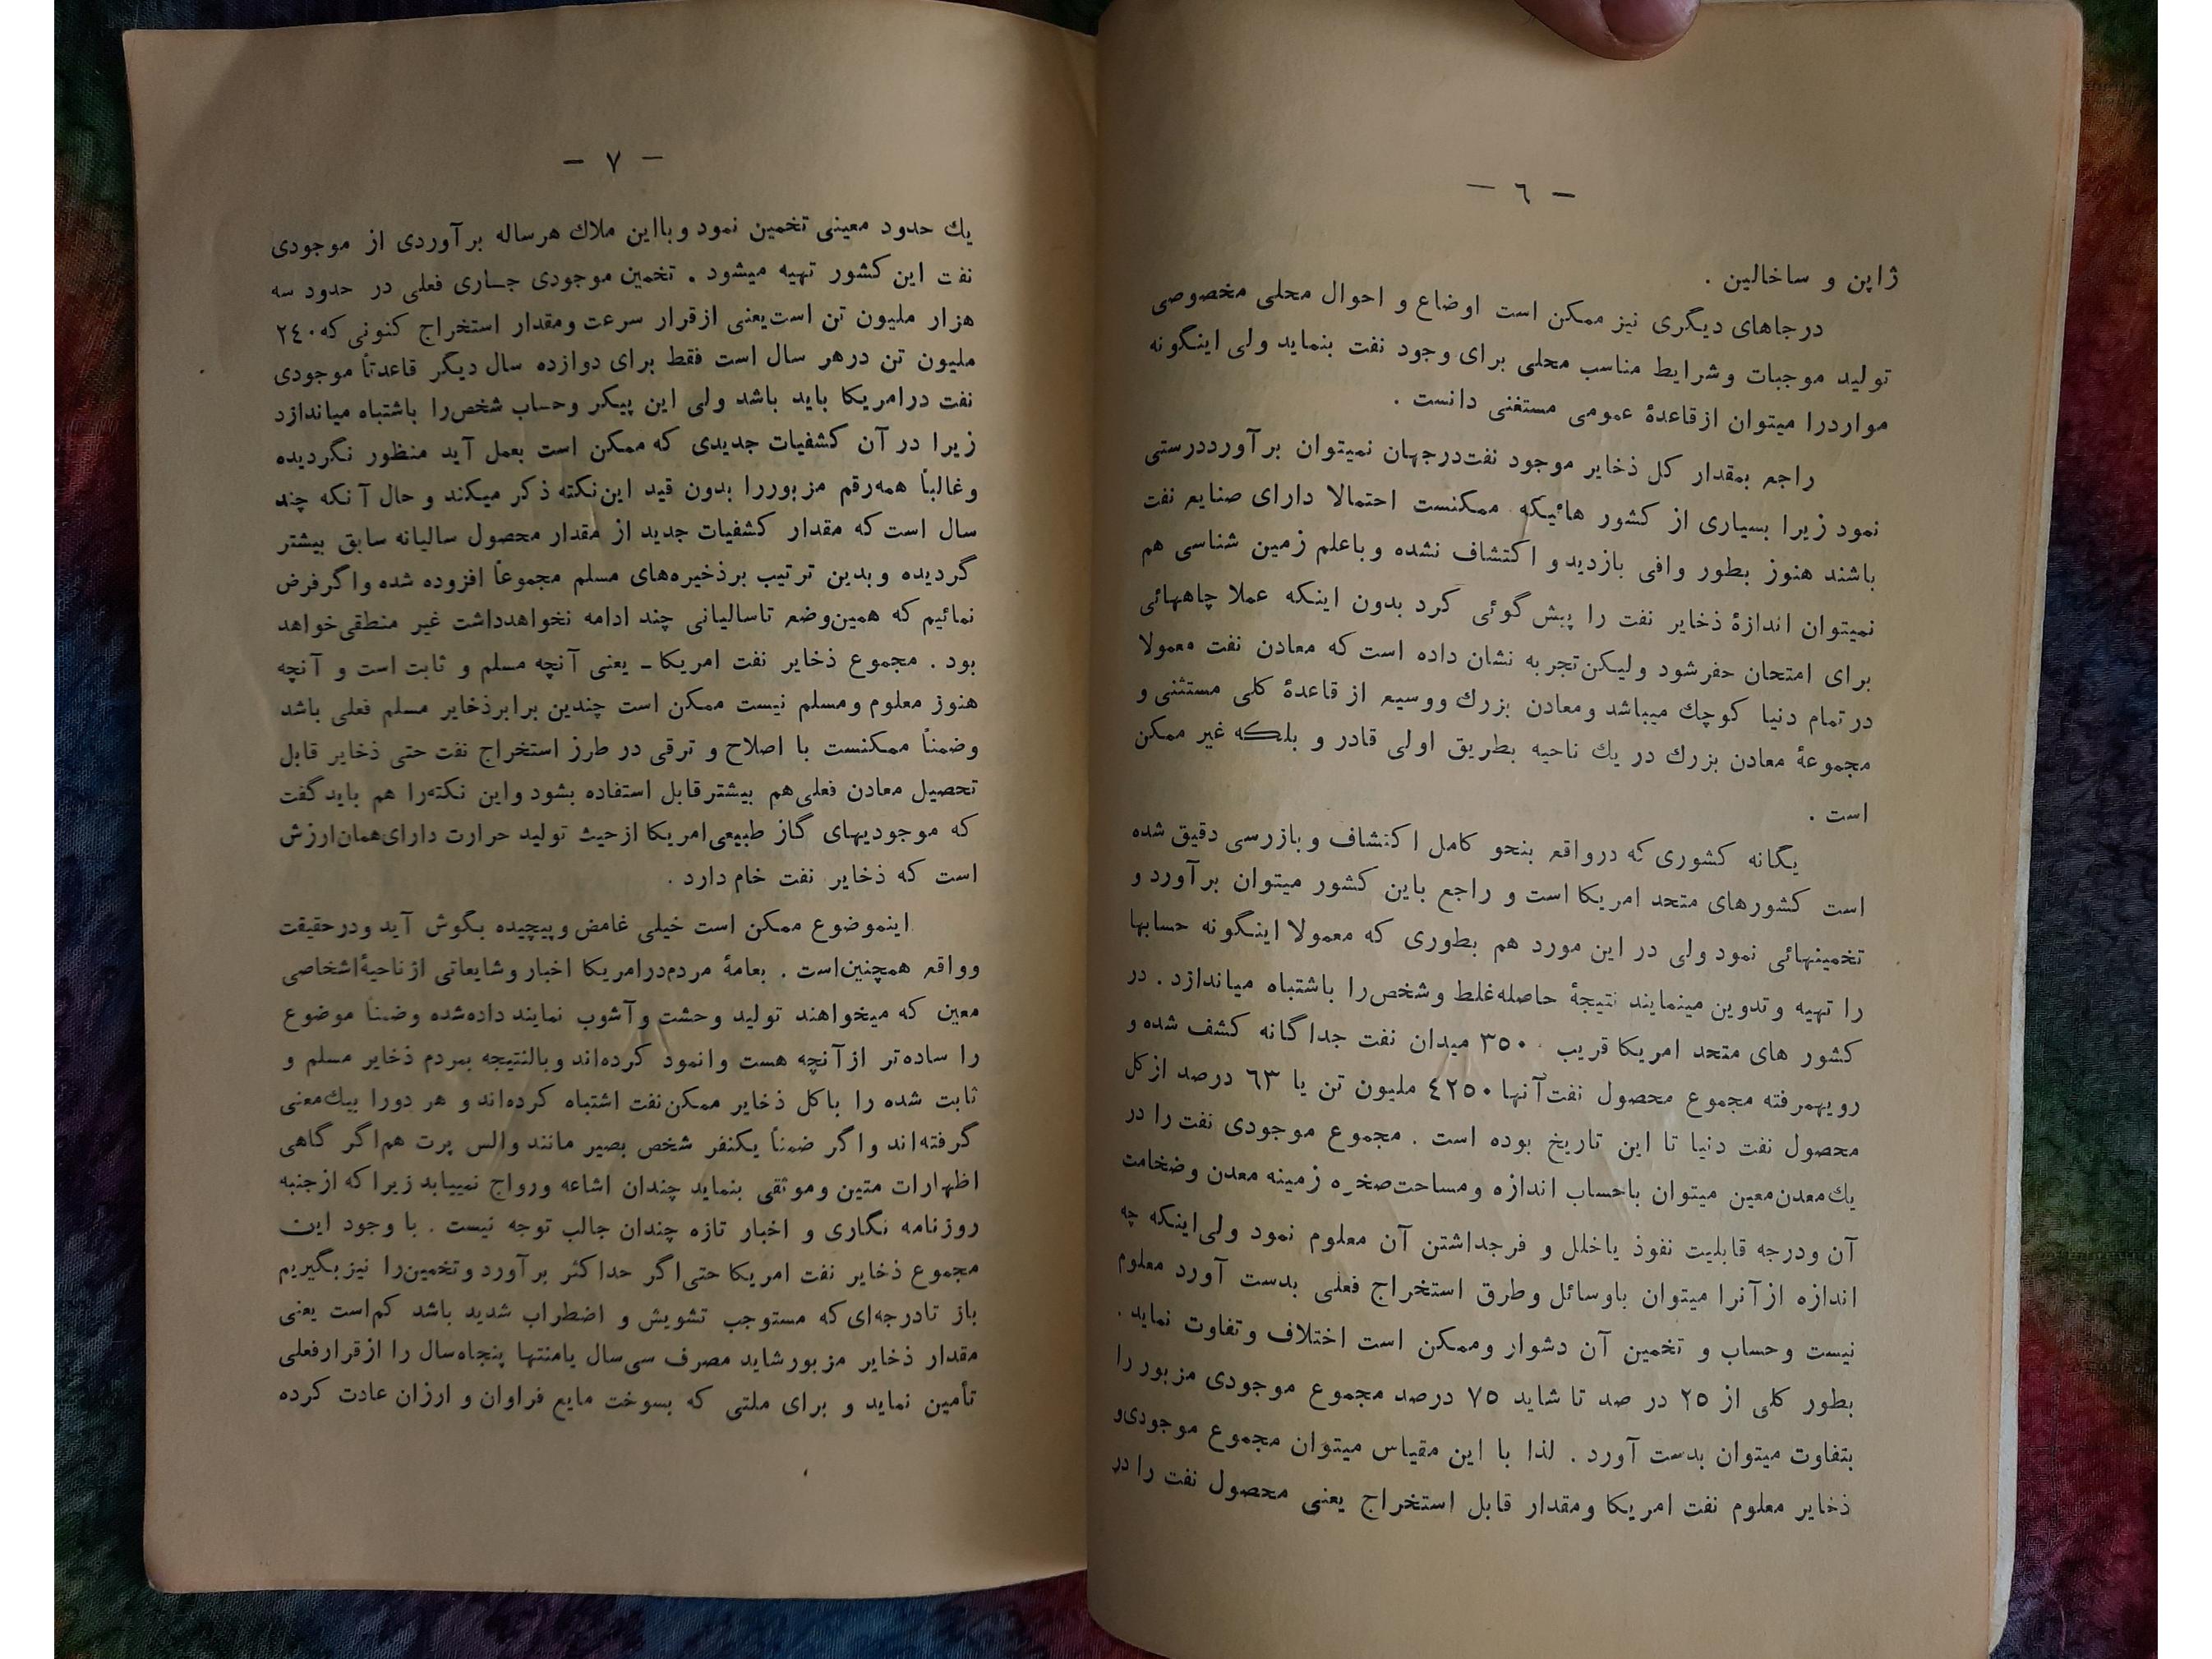 - ٦ -
ژاپن و ساخالین .
درجاهای دیگری نیز ممکن است اوضاع و احوال محلی مخصوصی
تولید موجبات وشرایط مناسب محلی برای وجود نفت بنماید ولی اینگونه
مواردرا میتوان ازقاعدهٔ عمومی مستغنی دانست .
راجع بمقدار کل ذخایر موجود نفت‌درجهان نمیتوان برآورددرستی
نمود زیرا بسیاری از کشور هائیکه ممکنست احتمالا دارای صنایع نفت
باشند هنوز بطور وافی بازدید و اکتشاف نشده وباعلم زمین شناسی هم
نمیتوان اندازهٔ ذخایر نفت را پیش گوئی کرد بدون اینکه عملا چاههائی
برای امتحان حفرشود ولیکن‌تجربه نشان داده است که معادن نفت معمولا
درتمام دنیا کوچك میباشد ومعادن بزرك ووسیع از قاعدهٔ کلی مستثنی و
مجموعهٔ معادن بزرك در یك ناحیه بطریق اولی قادر و بلکه غیر ممکن
است .
یگانه کشوری که درواقع بنحو کامل اکتشاف وبازرسی دقیق شده
است کشورهای متحد امریکا است و راجع باین کشور میتوان برآورد و
تخمینهائی نمود ولی در این مورد هم بطوری که معمولا اینگونه حسابها
را تهیه وتدوین مینمایند نتیجهٔ حاصله‌غلط وشخص‌را باشتباه میاندازد . در
کشور های متحد امریکا قریب ۳۵۰۰ میدان نفت جداگانه کشف شده و
رویهمرفته مجموع محصول نفت‌آنها ٤٢٥٠ ملیون تن یا ٦٣ درصد ازکل
محصول نفت دنیا تا این تاریخ بوده است . مجموع موجودی نفت را در
یك‌معدن‌معین میتوان باحساب اندازه ومساحت‌صخره زمینه معدن وضخامت
آن ودرجه قابلیت نفوذ یاخلل و فرجداشتن آن معلوم نمود ولی‌اینکه چه
اندازه ازآنرا میتوان باوسائل وطرق استخراج فعلی بدست آورد معلوم
نیست وحساب و تخمین آن دشوار وممکن است اختلاف وتفاوت نماید .
بطور کلی از ۲۵ در صد تا شاید ۷۵ درصد مجموع موجودی مزبور را
بتفاوت میتوان بدست آورد . لذا با این مقیاس میتوان مجموع موجودی‌و
ذخایر معلوم نفت امریکا ومقدار قابل استخراج یعنی محصول نفت را در
- ۷ -
یك حدود معینی تخمین نمود وبااین ملاك هرساله برآوردی از موجودی
نفت این کشور تهیه میشود . تخمین موجودی جاری فعلی در حدود سه
هزار ملیون تن است‌یعنی ازقرار سرعت ومقدار استخراج کنونی که ۲٤۰
ملیون تن درهر سال است فقط برای دوازده سال دیگر قاعدتاً موجودی
نفت درامریکا باید باشد ولی این پیکر وحساب شخص‌را باشتباه میاندازد
زیرا در آن کشفیات جدیدی که ممکن است بعمل آید منظور نگردیده
وغالباً همه‌رقم مزبوررا بدون قید این‌نکته ذکر میکند و حال آنکه چند
سال است که مقدار کشفیات جدید از مقدار محصول سالیانه سابق بیشتر
گردیده وبدین ترتیب برذخیره‌های مسلم مجموعاً افزوده شده واگرفرض
نمائیم که همین‌وضع تاسالیانی چند ادامه نخواهدداشت غیر منطقی‌خواهد
بود . مجموع ذخایر نفت امریکا ـ یعنی آنچه مسلم و ثابت است و آنچه
هنوز معلوم ومسلم نیست ممکن است چندین برابرذخایر مسلم فعلی باشد
وضمناً ممکنست با اصلاح و ترقی در طرز استخراج نفت حتی ذخایر قابل
تحصیل معادن فعلی‌هم بیشترقابل استفاده بشود واین نکته‌را هم بایدگفت
که موجودیهای گاز طبیعی‌امریکا ازحیث تولید حرارت دارای‌همان‌ارزش
است که ذخایر نفت خام دارد .
اینموضوع ممکن است خیلی غامض وپیچیده بگوش آید ودرحقیقت
وواقع همچنین‌است . بعامهٔ مردم‌درامریکا اخبار وشایعاتی ازناحیهٔ‌اشخاصی
معین که میخواهند تولید وحشت وآشوب نمایند داده‌شده وضمناً موضوع
را ساده‌تر ازآنچه هست وانمود کرده‌اند وبالنتیجه بمردم ذخایر مسلم و
ثابت شده را باکل ذخایر ممکن‌نفت اشتباه کرده‌اند و هر دورا بیك‌معنی
گرفته‌اند واگر ضمناً یکنفر شخص بصیر مانند والس پرت هم‌اگر گاهی
اظهارات متین وموثقی بنماید چندان اشاعه ورواج نمییابد زیراکه ازجنبه
روزنامه نگاری و اخبار تازه چندان جالب توجه نیست . با وجود این
مجموع ذخایر نفت امریکا حتی‌اگر حداکثر برآورد وتخمین‌را نیزبگیریم
باز تادرجه‌ای‌که مستوجب تشویش و اضطراب شدید باشد کم‌است یعنی
مقدار ذخایر مزبورشاید مصرف سی‌سال یامنتها پنجاه‌سال را ازقرارفعلی
تأمین نماید و برای ملتی که بسوخت مایع فراوان و ارزان عادت کرده